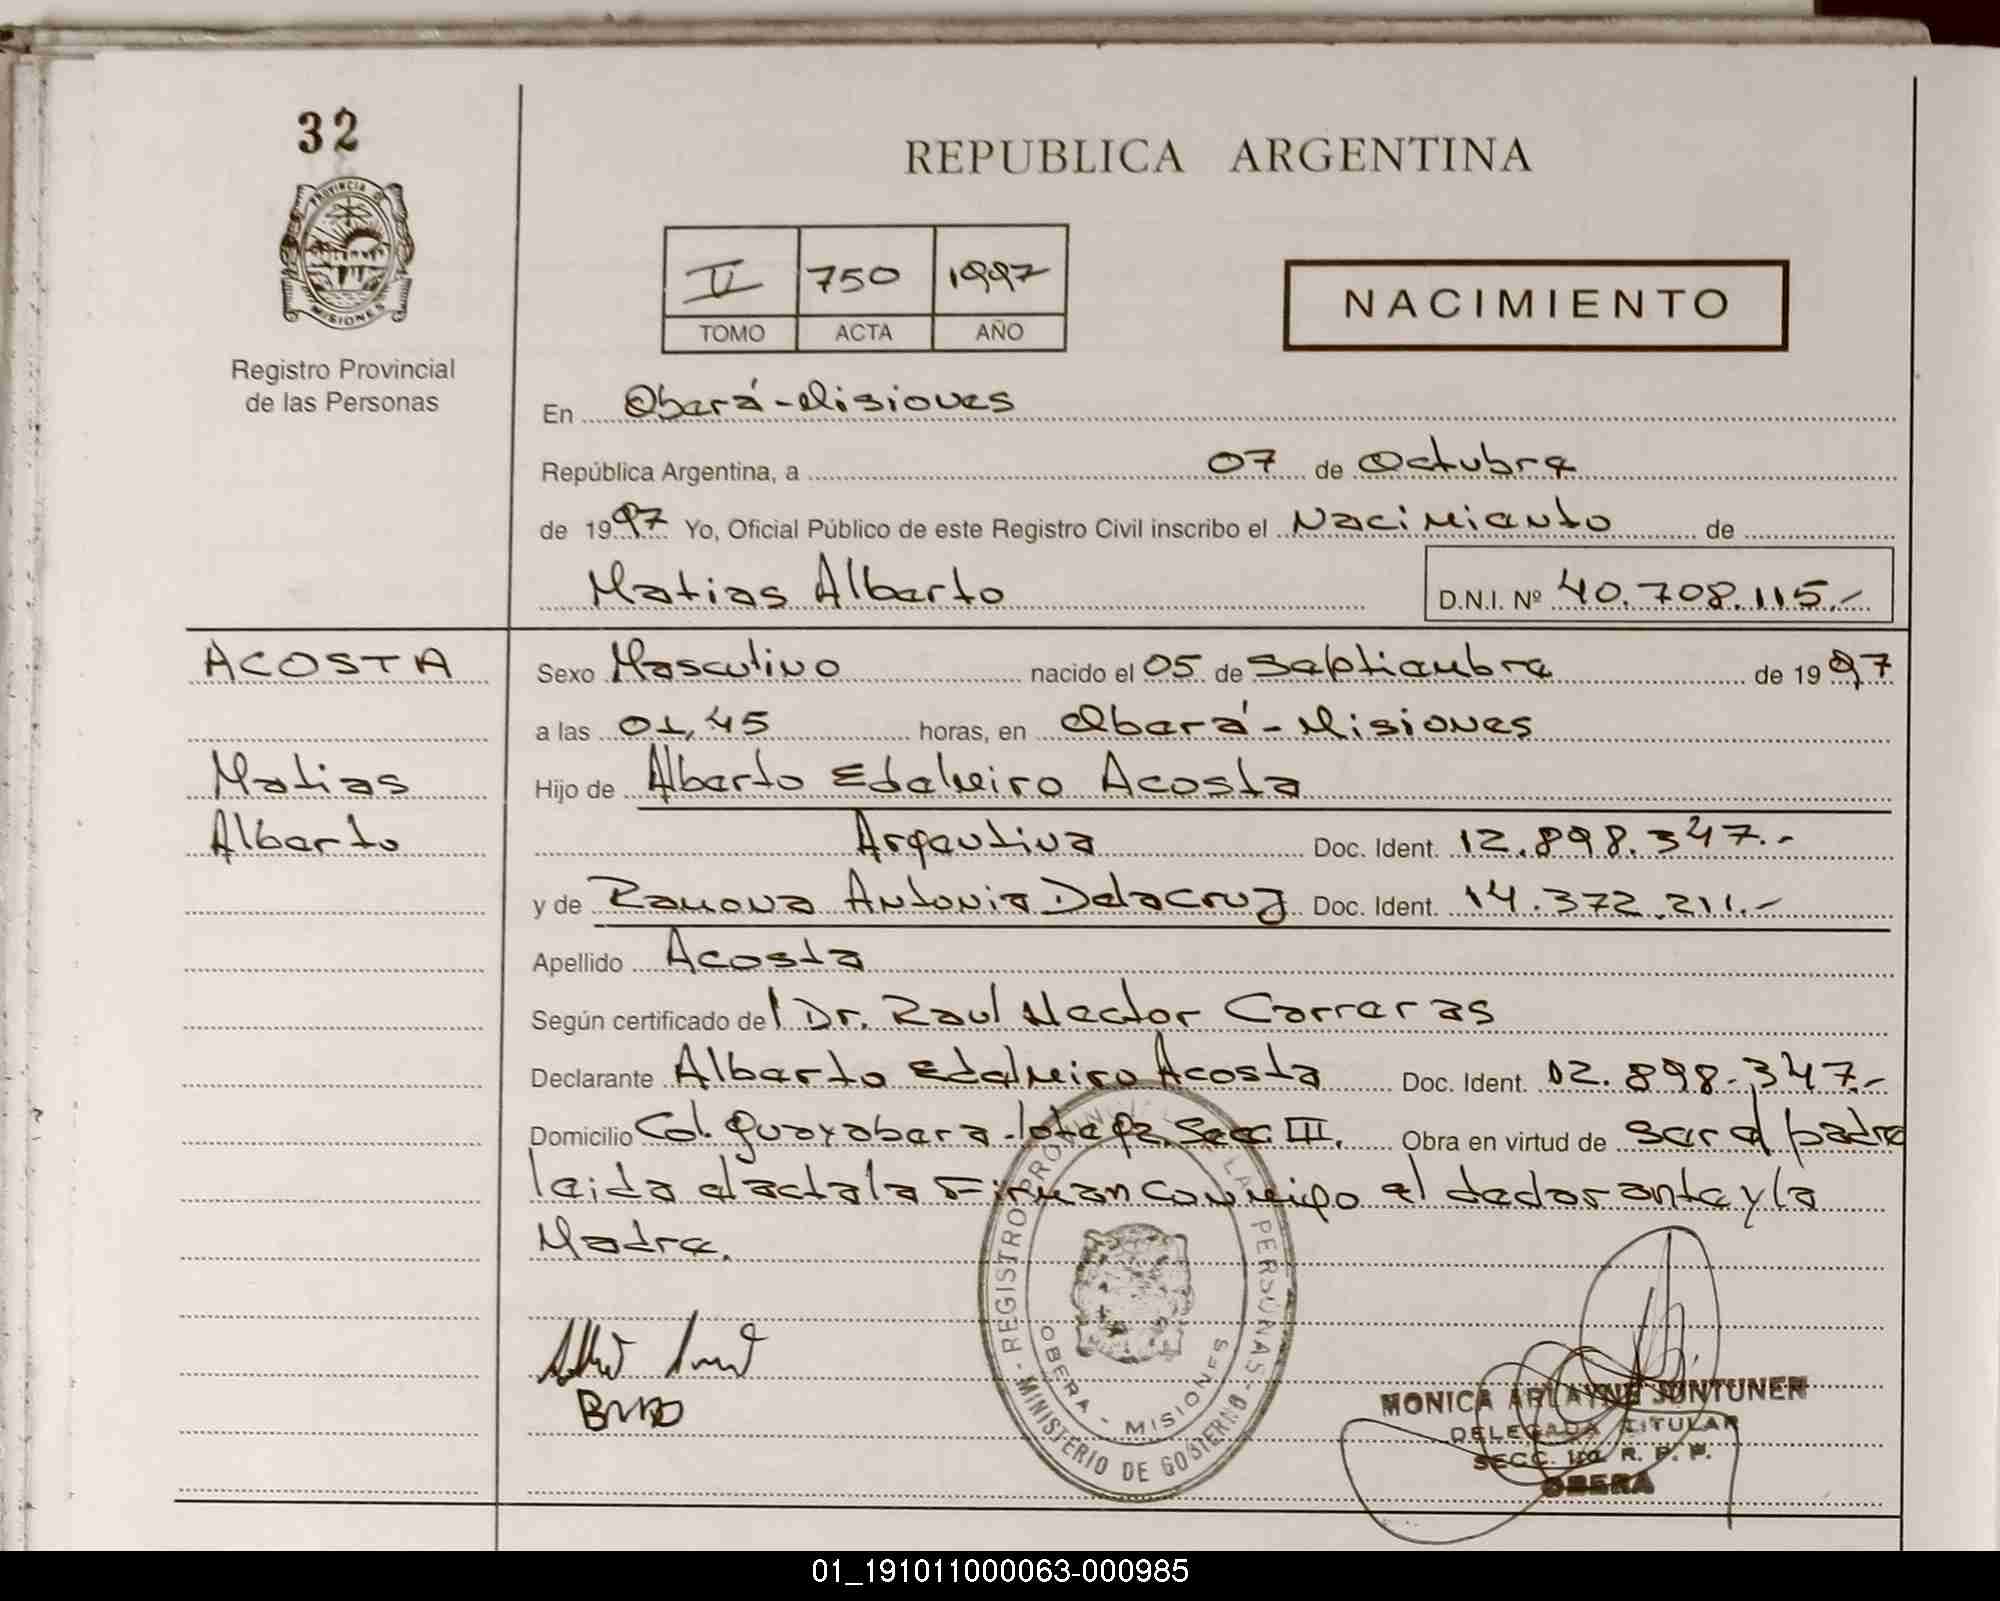 32
PROVINCIA DE
MISIONES
Registro Provincial
de las Personas
REPUBLICA ARGENTINA
II 750 1997
TOMO ACTA AÑO
NACIMIENTO
En Oberá-Misiones
República Argentina, a 07 de Octubre
de 1997 Yo, Oficial Público de este Registro Civil inscribo el Nacimiento de
Matias Alberto D.N.I. Nº 40.708.115.-
ACOSTA
Matias
Alberto
Sexo Masculino nacido el 05 de Septiembre de 1997
a las 01,45 horas, en Oberá-Misiones
Hijo de Alberto Edelmiro Acosta
Argentina Doc. Ident. 12.898.347.-
y de Ramona Antonia Delacruz Doc. Ident. 14.372.211.-
Apellido Acosta
Según certificado del Dr. Raul Hector Carreras
Declarante Alberto Edelmiro Acosta Doc. Ident. 12.898.347.-
Domicilio Col. Guayabera-lote 92. Secc. III. Obra en virtud de ser el padre
leida el acta la Firman conmigo el declarante y la
Madre.
REGISTRO PROVINCIAL DE LAS PERSONAS - MINISTERIO DE GOBIERNO -
OBERA - MISIONES
MONICA ARLAYNE JUNTUNEN
DELEGADA TITULAR
SECC. 1ra. R. P. P.
OBERA
01_191011000063-000985